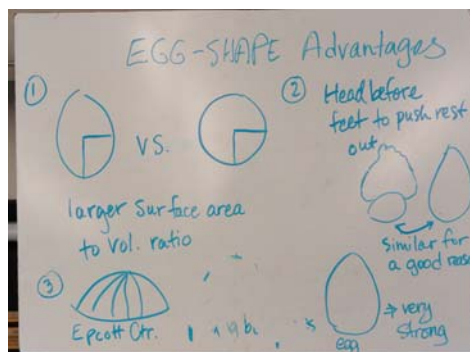 EGG-SHAPE Advantages
①
vs.
larger surface area
to vol. ratio
② Head before
feet to push rest
out
similar for
a good reason
③
Epcott Ctr.
egg
⇒ very
strong